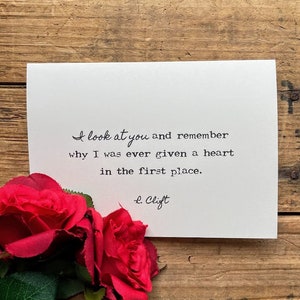 I look at you and remember
why I was ever given a heart
in the first place.
R. Clift